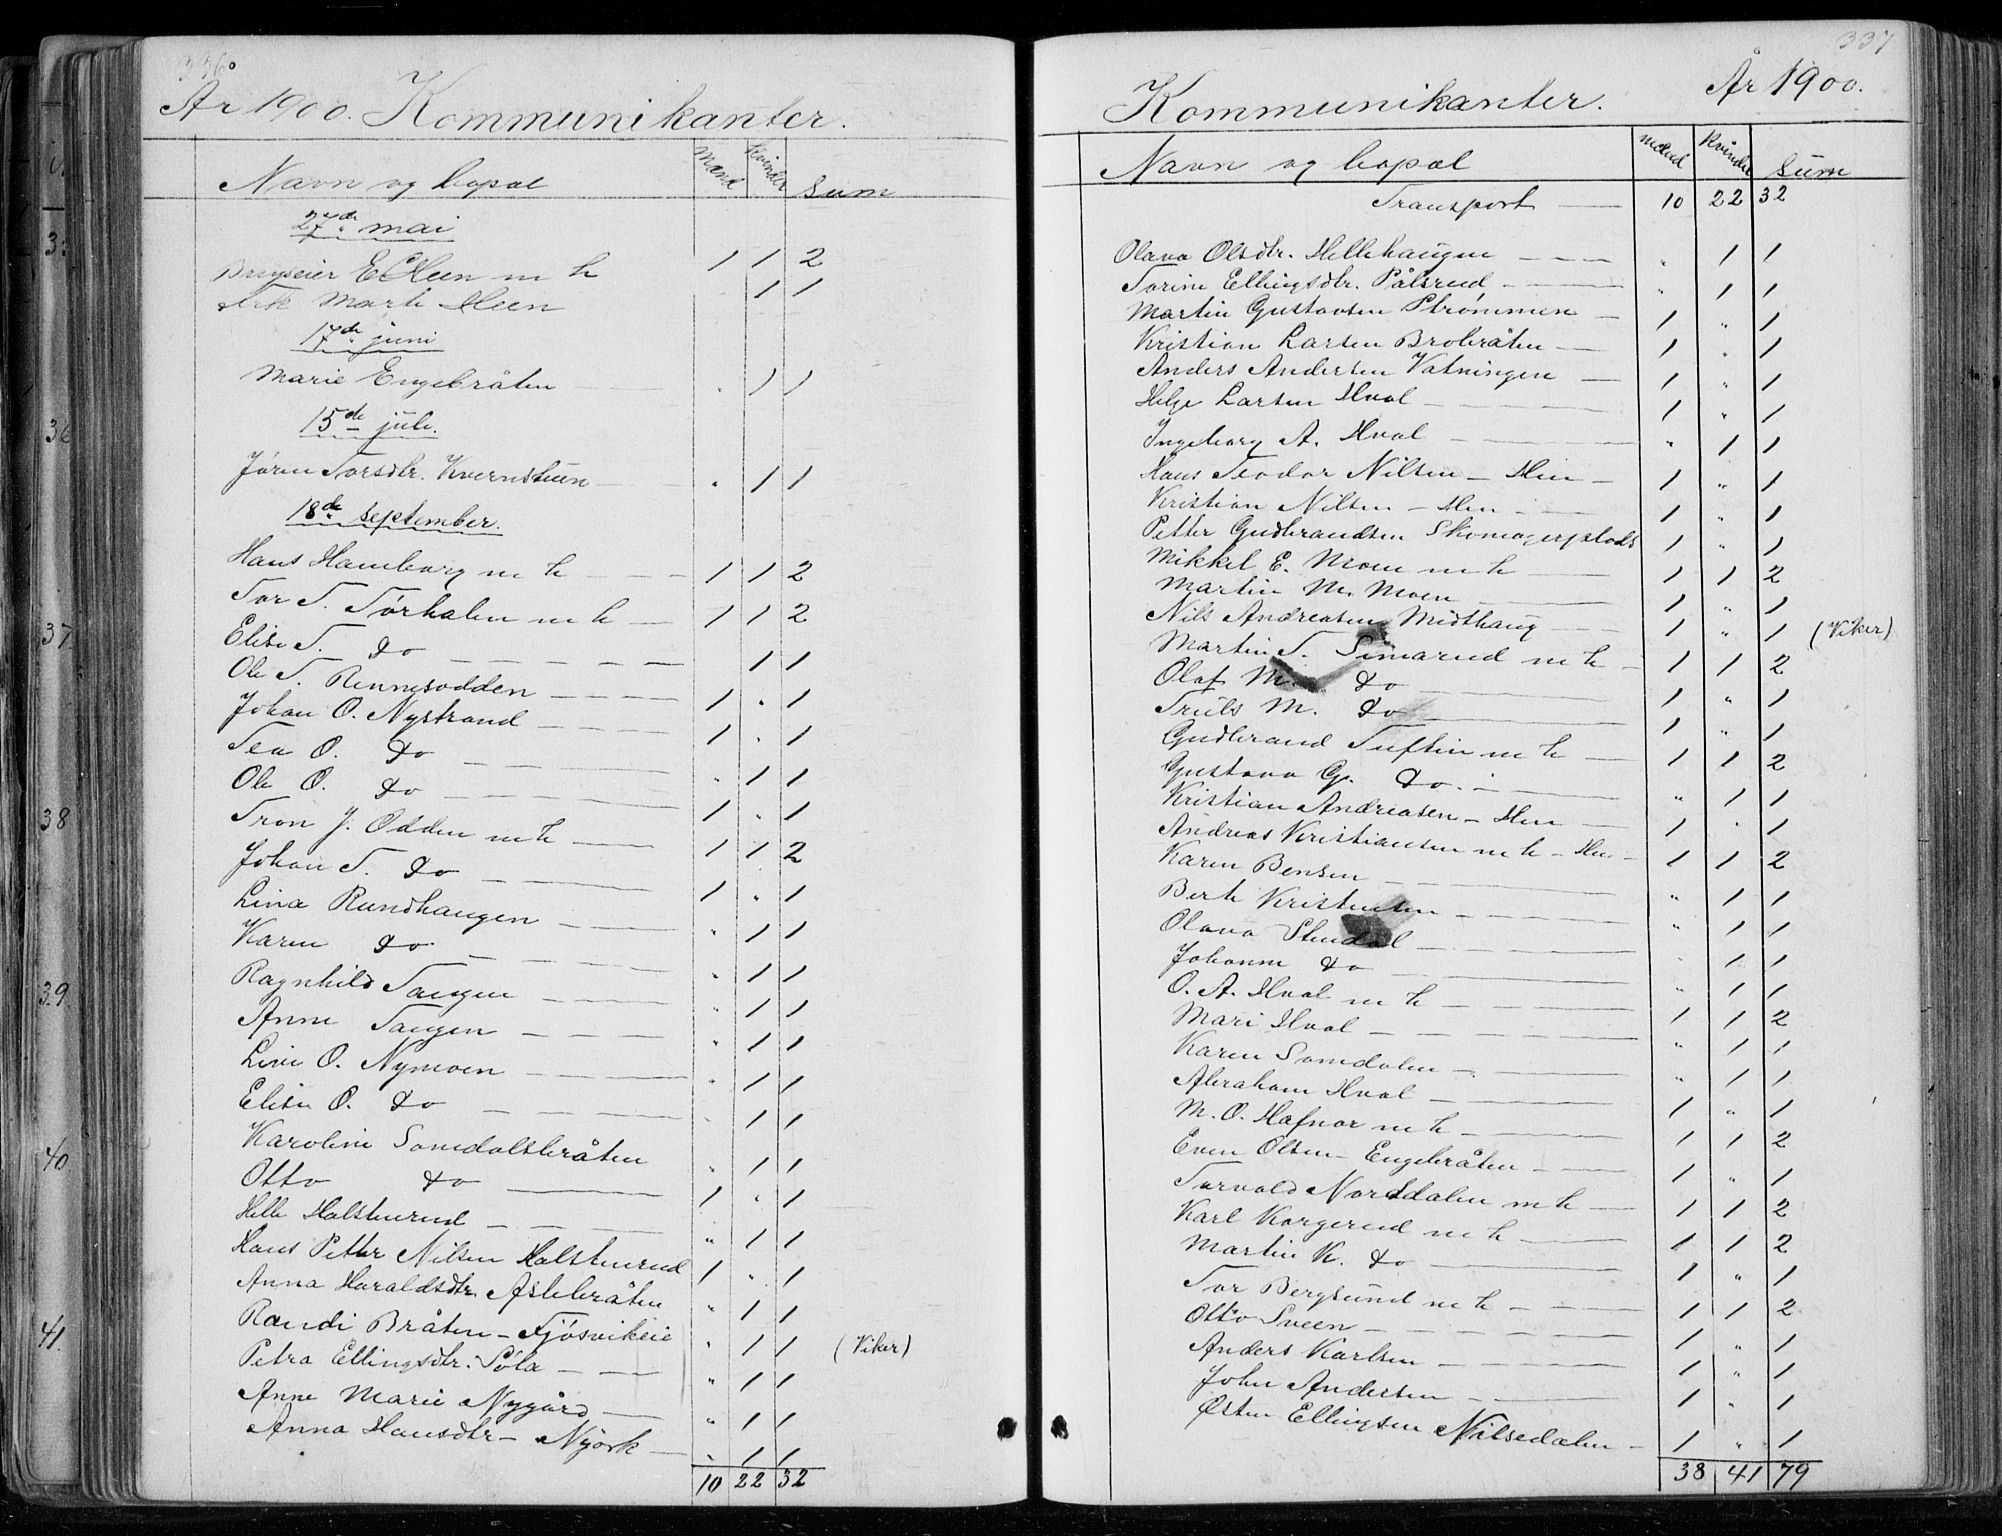 336
År 1900. Kommunikanter.
Navn og bopæl Mænd Kvinder Sum
27de mai
E Heen m h 1 1 2
Frk Marte Heen 1 1
17de juni
Marie Engebråten " 1 1
15de juli.
Jøren Torsdtr. Kvernstuen " 1 1
18de september.
Hans Hamborg m h 1 1 2
Tor T. Tørhalen m h 1 1 2
Elise T. do 1 1
Ole T. Rennesodden 1 " 1
Johan O. Nystrand 1 " 1
Tea O. do " 1 1
Ole O. do 1 " 1
Tron J. Odden m h 1 1 2
Johan T. do 1 " 1
Lina Rundhaugen " 1 1
Karen do " 1 1
Ragnhild Taugen " 1 1
Anne Taugen " 1 1
Live O. Nymoen " 1 1
Elise O. do " 1 1
Karoline Somdalsbråten " 1 1
Otto do 1 " 1
Helle Halstenrud " 1 1
Hans Petter Nilsen Halstenrud 1 " 1
Anna Haraldsdtr. Aslebråten " 1 1
Randi Bråten - Fjøsvikeie " 1 1 (Viker)
Petra Ellingsdtr. Søla " 1 1
Anne Marie Nygård " 1 1
Anna Hansdtr - Nyørk " 1 1
10 22 32
337
Kommunikanter. År 1900.
Navn og bopæl Mænd Kvinder Sum
Transport 10 22 32
Olava Olsdtr. Hellehaugen " 1 1
Torine Ellingsdtr. Pålsrud " 1 1
Martin Gustavsen Strømmen 1 " 1
Kristian Larsen Brobråten 1 " 1
Anders Andersen Vatningen 1 " 1
Helge Larsen Hval 1 " 1
Ingeborg A. Hval " 1 1
Hans Teodor Nilsen - Hen 1 " 1
Kristian Nilsen - Hen 1 " 1
Petter Gudbrandsen Skomagerplads 1 " 1
Mikkel E. Moen m h 1 1 2
Martin M. Moen 1 " 1
Nils Andreasen Midthaug 1 " 1 (Viker)
Martin T. Simarud m h 1 1 2
Olaf M. do 1 " 1
Truls M. do 1 " 1
Gudbrand Tuftin m h 1 1 2
Gustava G. do " 1 1
Kristian Andreasen - Hen 1 " 1
Andreas Kristiansen m h - Hen 1 1 2
Karen Bensen " 1 1
Berte Kristensen " 1 1
Olava Stendal " 1 1
Johanne do " 1 1
O. A. Hval m h 1 1 2
Mari Hval " 1 1
Karen Somdalen " 1 1
Abraham Hval 1 " 1
M. O. Hafnor m h 1 1 2
Even Olsen Engebråten 1 " 1
Torvald Norddalen m h 1 1 2
Karl Korgerud m h 1 1 2
Martin K. do 1 " 1
Tor Bergsund m h 1 1 2
Otto Sveen 1 " 1
Anders Karlsen 1 " 1
John Andersen 1 " 1
Østen Ellingsen Nilsedalen 1 " 1
38 41 79
36
37
38
39
40
41